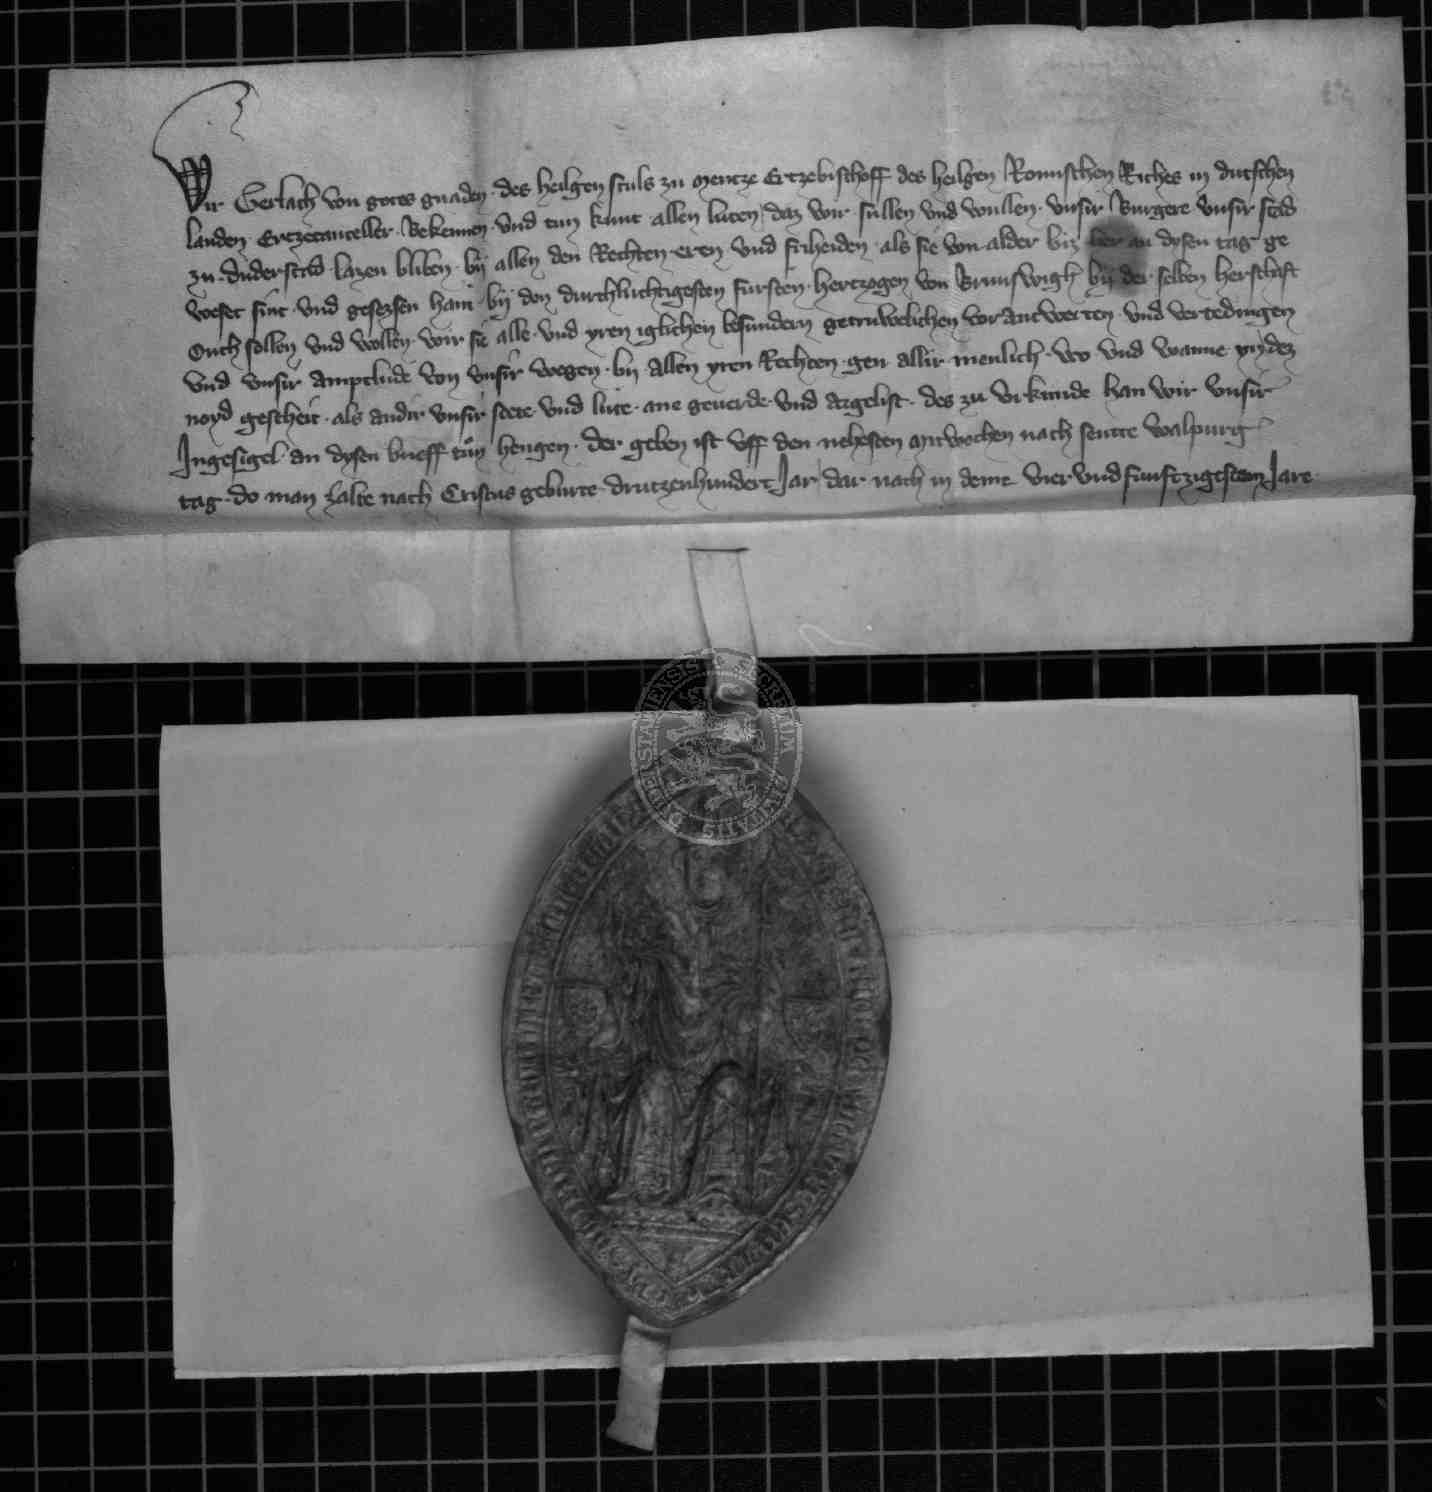 Wir Gerlach von gotes gnaden · des heilgen stuls zu Mentze Ertzebischoff des heilgen Romischen Riches in dutschen
landen Ertzecanceller · Bekennen · vnd tun kunt allen luten / daz wir sullen vnd wullen · vnsir Burgere vnsir stad
zu duderstad · lazen bliben · bij allen den Rechten eren vnd friheiden · als sie von alder biz her an dysen tag ge
weset sint · vnd gesezsen hain · bij den durchluchtigesten fursten · hertzogen von Brunswigh bij der selben herschaft
Ouch sollen vnd wollen · wir sie alle · vnd yren iglichen besundern getruwelichen vor antwerten · vnd vertedingen
vnd vnsir amptlude von vnsir wegen · bij allen yren Rechten · gen allir menlich · wo vnd wanne yn dez
noyd gescheit · als andir vnsir stete vnd lute · ane geuerde · vnd argelist · des zu vrkunde han wir vnsir
Ingesigel an dysen brieff tun hengen · der geben ist vff den nehesten mitwochen nach sentte walpurg
tag · do man zalte nach Cristus geburte · drutzenhundert Jar / dar nach in deme vier vnd funftzigestem Jare
SECRETUM CIVITATIS DUDERSTADIENSIS